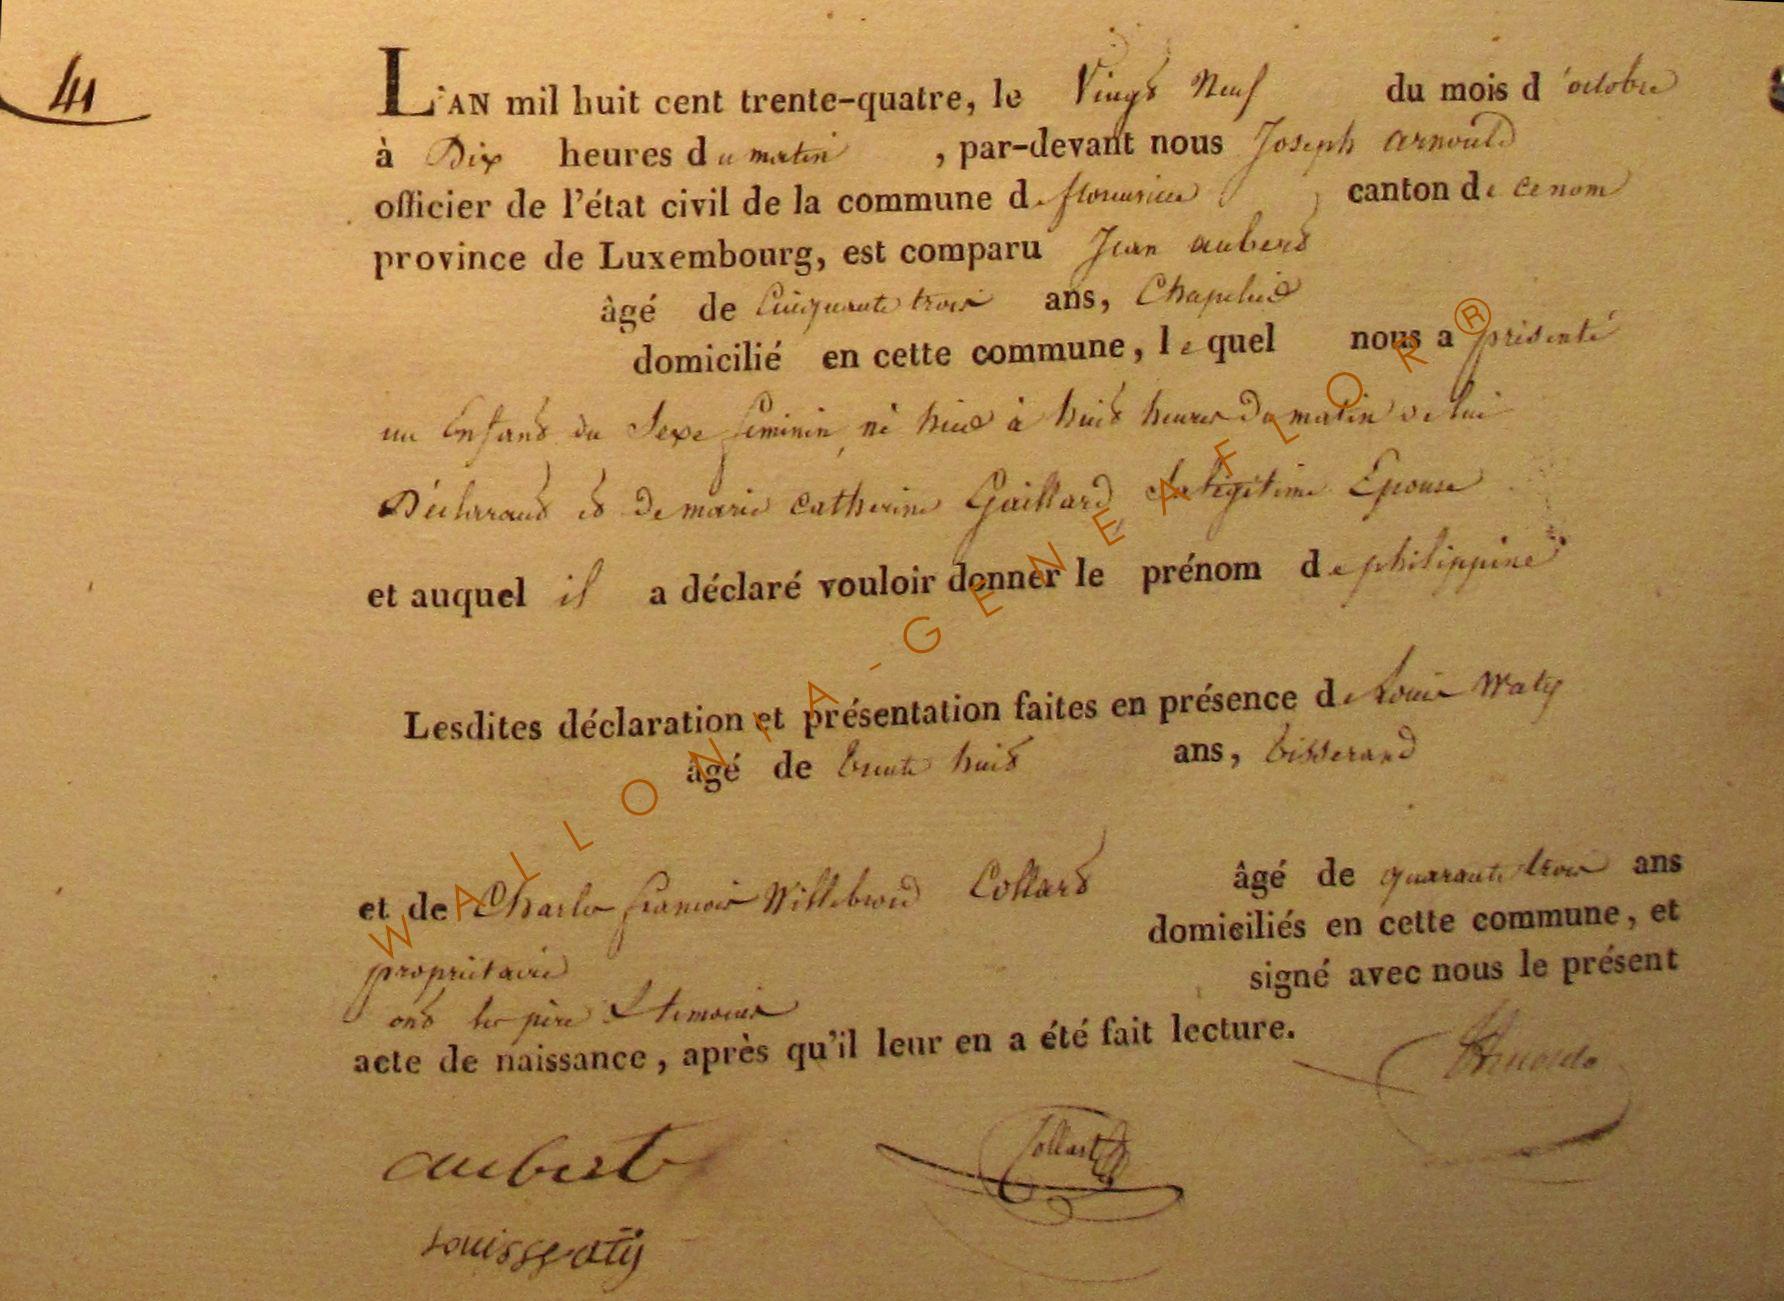 41
L'AN mil huit cent trente-quatre, le Vingt Neuf du mois d'octobre
à Dix heures du matin, par-devant nous Joseph arnould
officier de l'état civil de la commune de canton de ce nom
province de Luxembourg, est comparu Jean aubert
âgé de Cinquante trois ans, Chapelier
domicilié en cette commune, lequel nous a présenté
un Enfant du Sexe feminin, né hier à huit heures Du matin de lui
Déclarant et De marie catherine Gaillard Sa légitime Epouse
et auquel il a déclaré vouloir donner le prénom de philippine
Lesdites déclaration et présentation faites en présence de Louis Waty
âgé de trente huit ans, tisserand
et de Charles françois Willebrord Collard âgé de quarante trois ans
propriétaire domiciliés en cette commune, et
ont les père & temoins signé avec nous le présent
acte de naissance, après qu'il leur en a été fait lecture.
aubert
Collart
louis Waty
WALLONIA-GENEAFLOR®